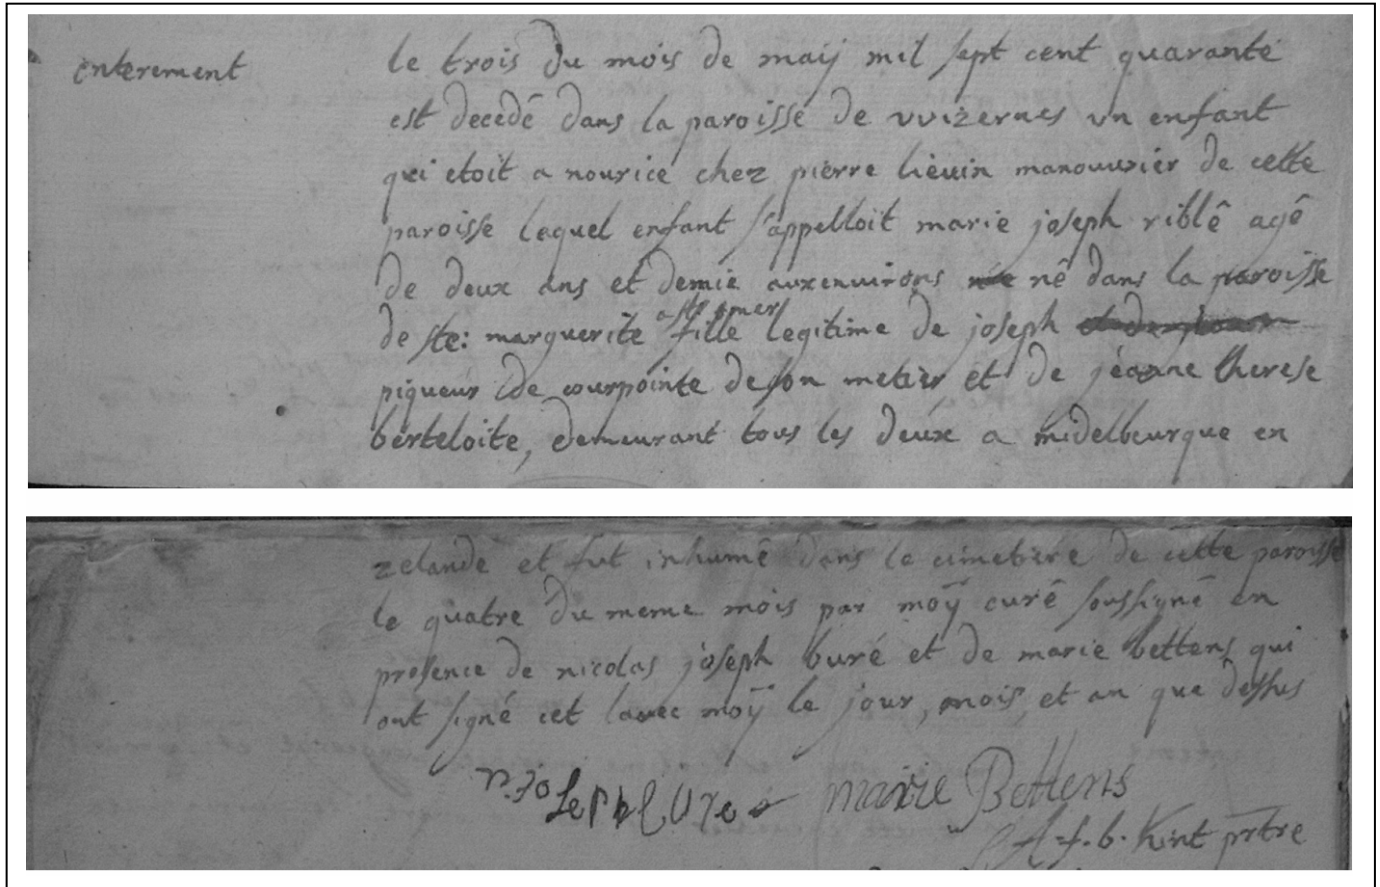 enterement
le trois du mois de maÿ mil sept cent quarante
est decedé dans la paroisse de vvizernes un enfant
qui etoit a nourice chez pierre lievin manouvrier de cette
paroisse lequel enfant s'appelloit marie joseph riblé agé
de deux ans et demie auxenvirons né dans la paroisse
a st omer
de ste: marguerite fille legitime de joseph
piqueur de courpointe deson metier et de jéanne therese
berteloite, demeurant tous les deux a midelbeurque en
zelande et fut inhumé dans le cimetiere de cette paroisse
le quatre du meme mois par moÿ curé soussigné en
presence de nicolas joseph buré et de marie bettens qui
ont signé cet avec moÿ le jour, mois, et an que dessus
n. joseph bure marie Bettens
f. b. Kint prtre